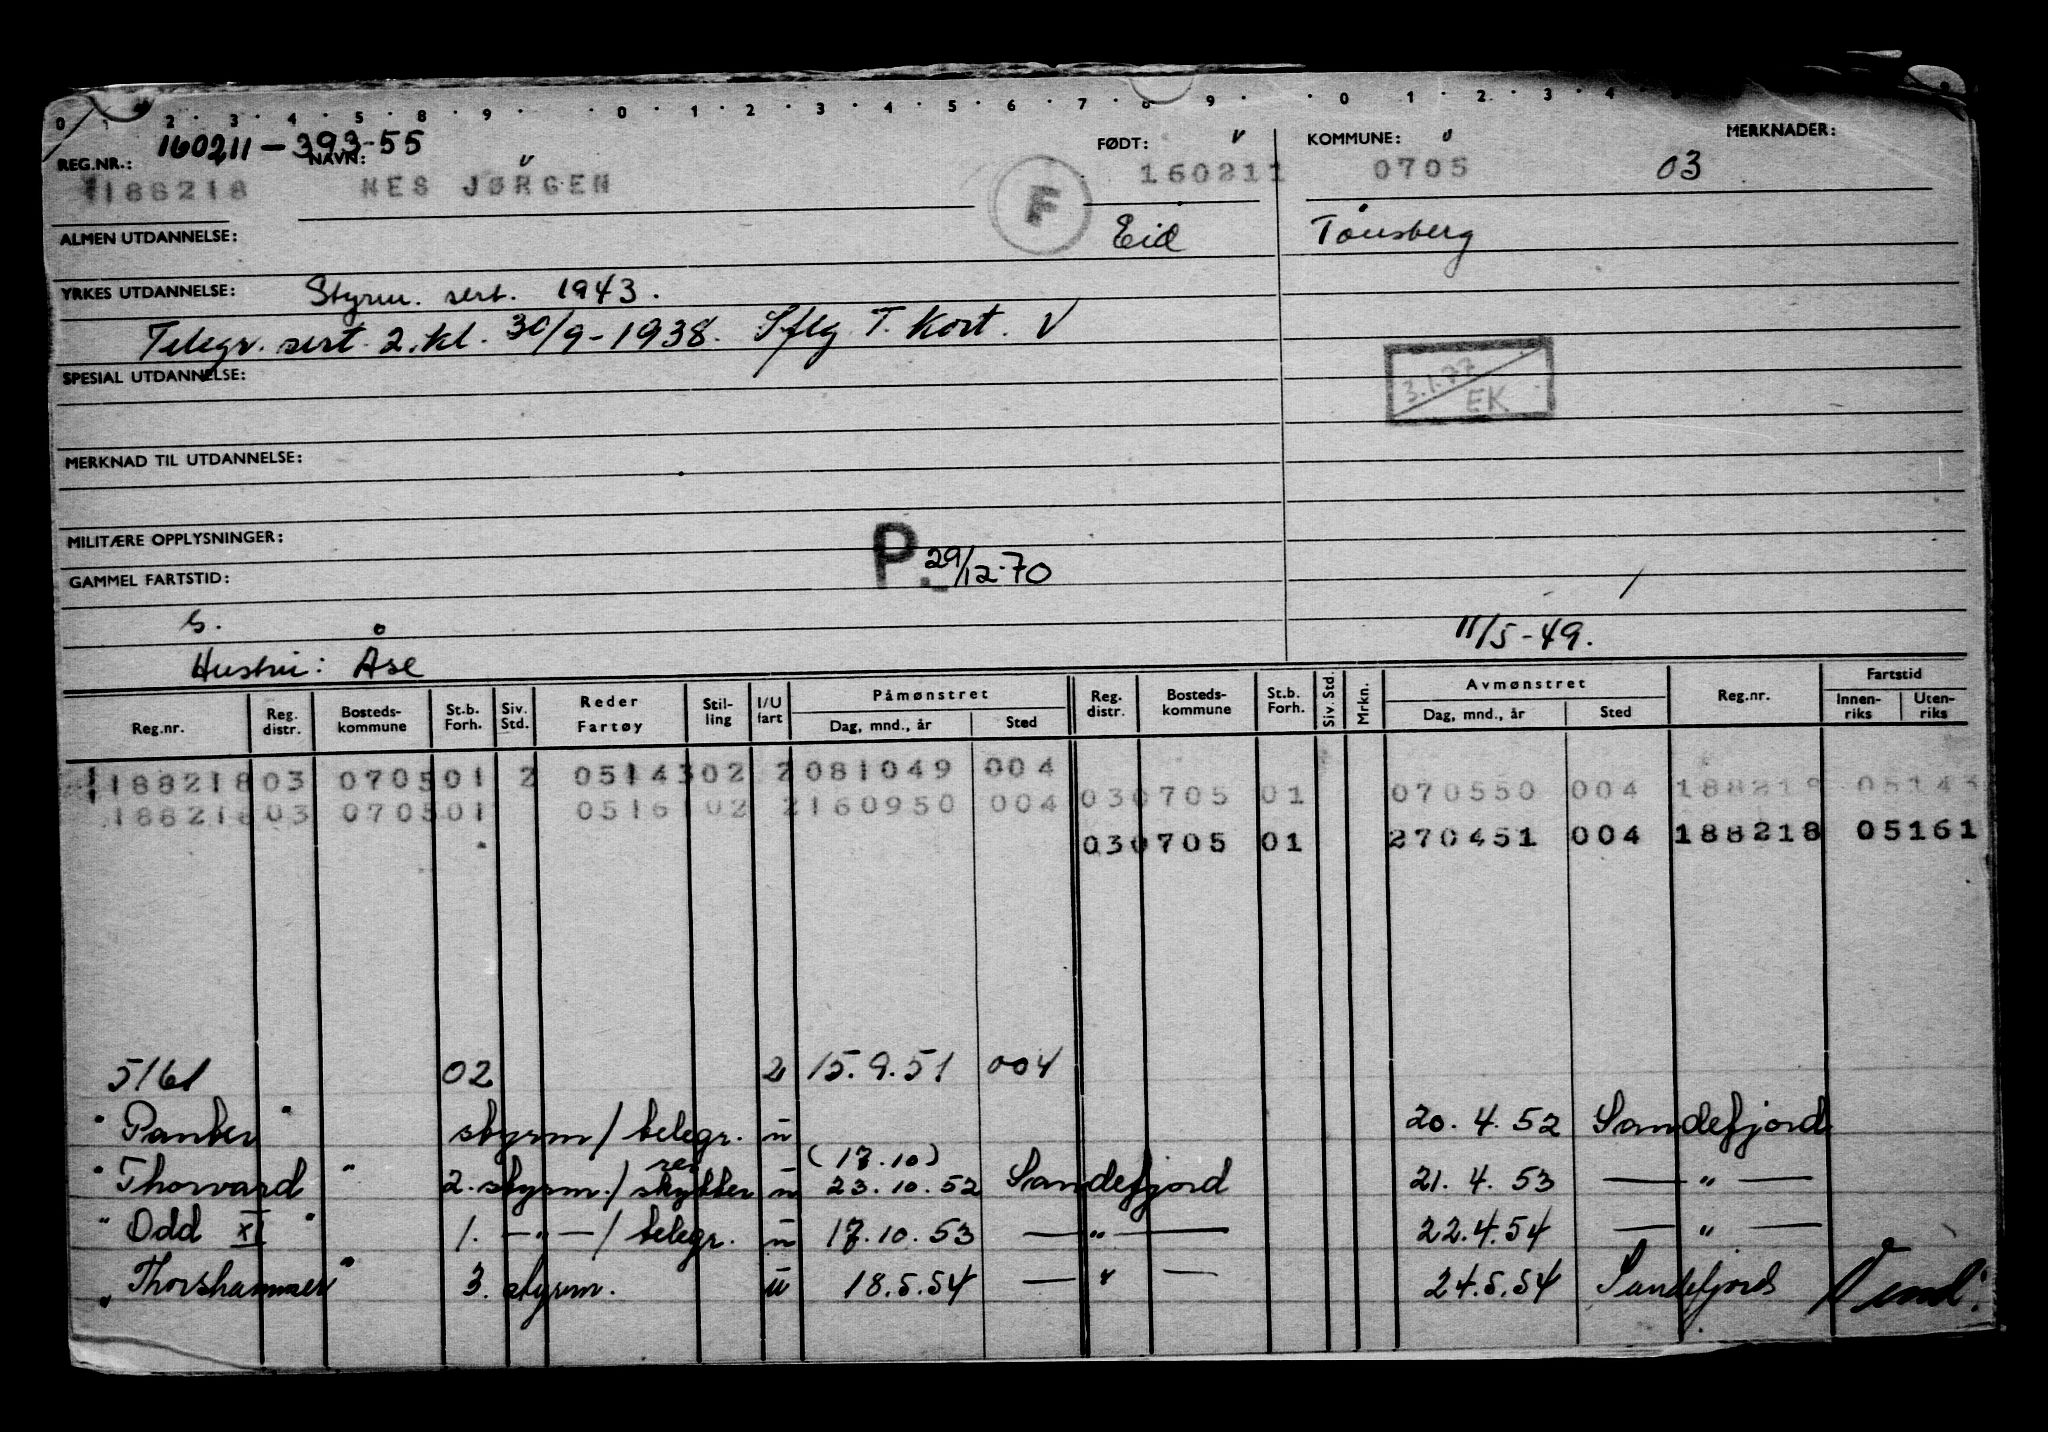 0 1 2 . 3 . 4 . 5 . 8 . 9 . . 0 . 1 . 2 . 3 . 4 . 5 . 6 . 7 . 8 . 9 . . 0 . 1 . 2 . 3 . 4
160211-393-55
REG.NR.: NAVN: FØDT: KOMMUNE: MERKNADER:
188218 NES JØRGEN F 160211 0705 03
ALMEN UTDANNELSE: Eid Tønsberg
YRKES UTDANNELSE: Styrm. sert. 1943.
Telegr. sert. 2. kl. 30/9-1938. Sflg T. Kort. V
SPESIAL UTDANNELSE: 3.1.77 EK
MERKNAD TIL UTDANNELSE:
MILITÆRE OPPLYSNINGER:
P. 29/12-70
GAMMEL FARTSTID:
S. 11/5-49.
Hustru: Åse
Reg.nr. Reg. distr. Bosteds-kommune St.b. Forh. Siv. Std. Reder Fartøy Stil-ling I/U fart Påmønstret Dag, mnd., år Sted Reg. distr. Bosteds-kommune St.b. Forh. Siv. Std. Mrkn. Avmønstret Dag, mnd., år Sted Reg.nr. Fartstid Innen-riks Uten-riks
188218 03 0705 01 2 05143 02 2 081049 004
188218 03 0705 01 05161 02 2 160950 004 03 0705 01 070550 004 188218 05143
03 0705 01 270451 004 188218 05161
5161 02 2 15.9.51 004
"Panter" styrm/telegr. u 20.4.52 Sandefjord
(17.10)
"Thorvard" 2. styrm./res skytter u 23.10.52 Sandefjord 21.4.53 — " —
"Odd XI" 1. — " —/telegr. u 17.10.53 — " — 22.4.54 — " —
"Thorshammer" 3. styrm. u 18.5.54 — " — 24.5.54 Sandefjord Vend.